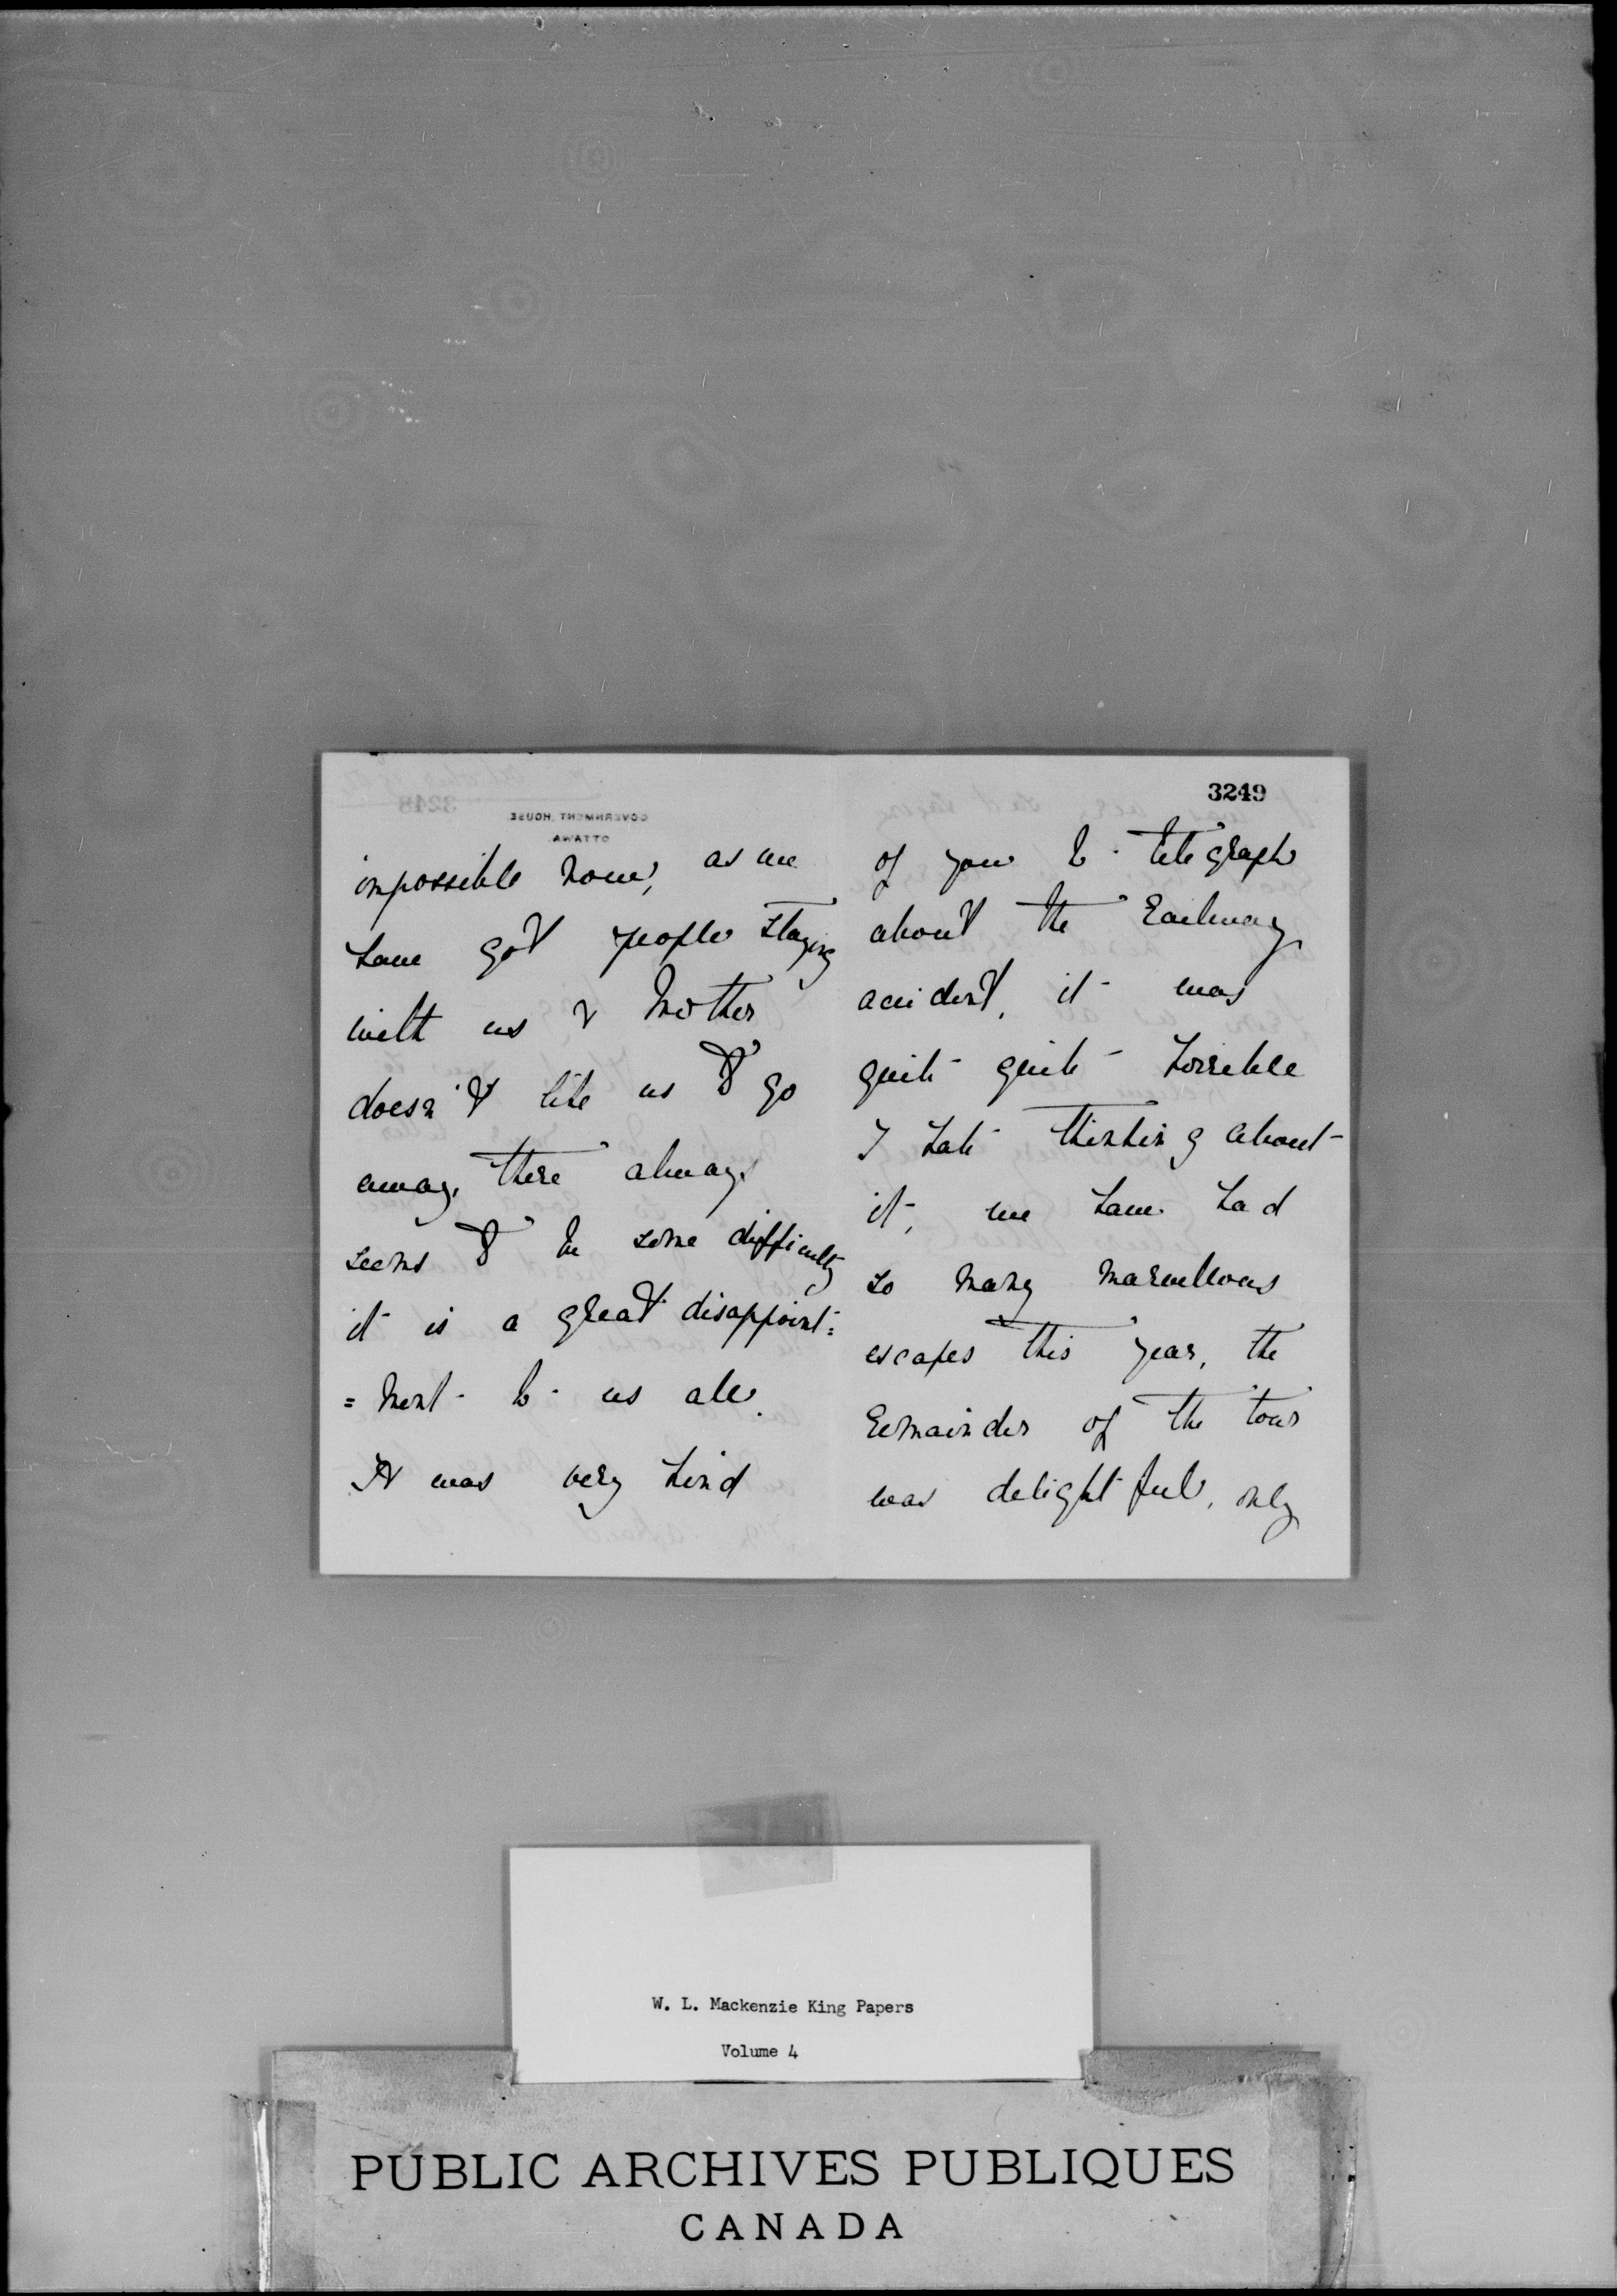 3249
GOVERNMENT HOUSE.
OTTAWA.
impossible now, as we
have got people staying
with us & Mother
doesn't like us to go
away, there always
seems to be some difficulty
it is a great disappoint=
=ment to us all.
It was very kind
of you to telegraph
about the Railway
accident, it was
quite quite horrible
I hate thinking about
it, we have had
so many marvellous
escapes this year, the
remainder of the tour
was delightful, only
W. L. Mackenzie King Papers
Volume 4
PUBLIC ARCHIVES PUBLIQUES
CANADA